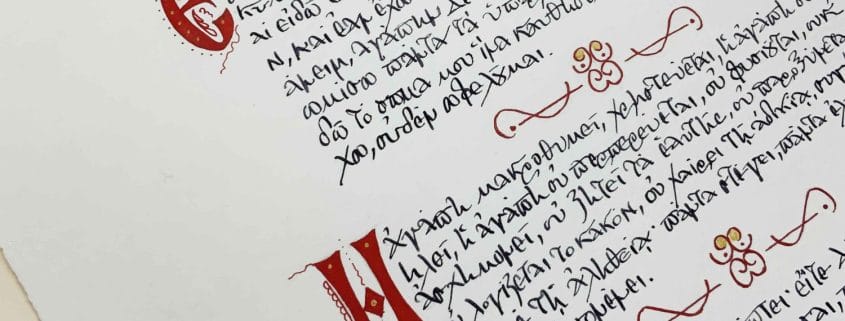 αι εἰδῶ
ν, καὶ ἐὰν ἔχω
άνειν, ἀγάπην δὲ
ωμίσω πάντα τὰ ὑπά
δῶ τὸ σῶμα μου ἵνα καυθήσω
χω, οὐδὲν ὠφελοῦμαι.
Ἡ ἀγάπη μακροθυμεῖ, χρηστεύεται, ἡ ἀγάπη οὐ
ηλοῖ, ἡ ἀγάπη οὐ περπερεύεται, οὐ φυσιοῦται, οὐκ
ἀσχημονεῖ, οὐ ζητεῖ τὰ ἑαυτῆς, οὐ παροξύνετα
λογίζεται τὸ κακόν, οὐ χαίρει τῇ ἀδικίᾳ, συγ
τῇ ἀληθείᾳ· πάντα στέγει, πάντα
ομένει.
πτει· εἴτε